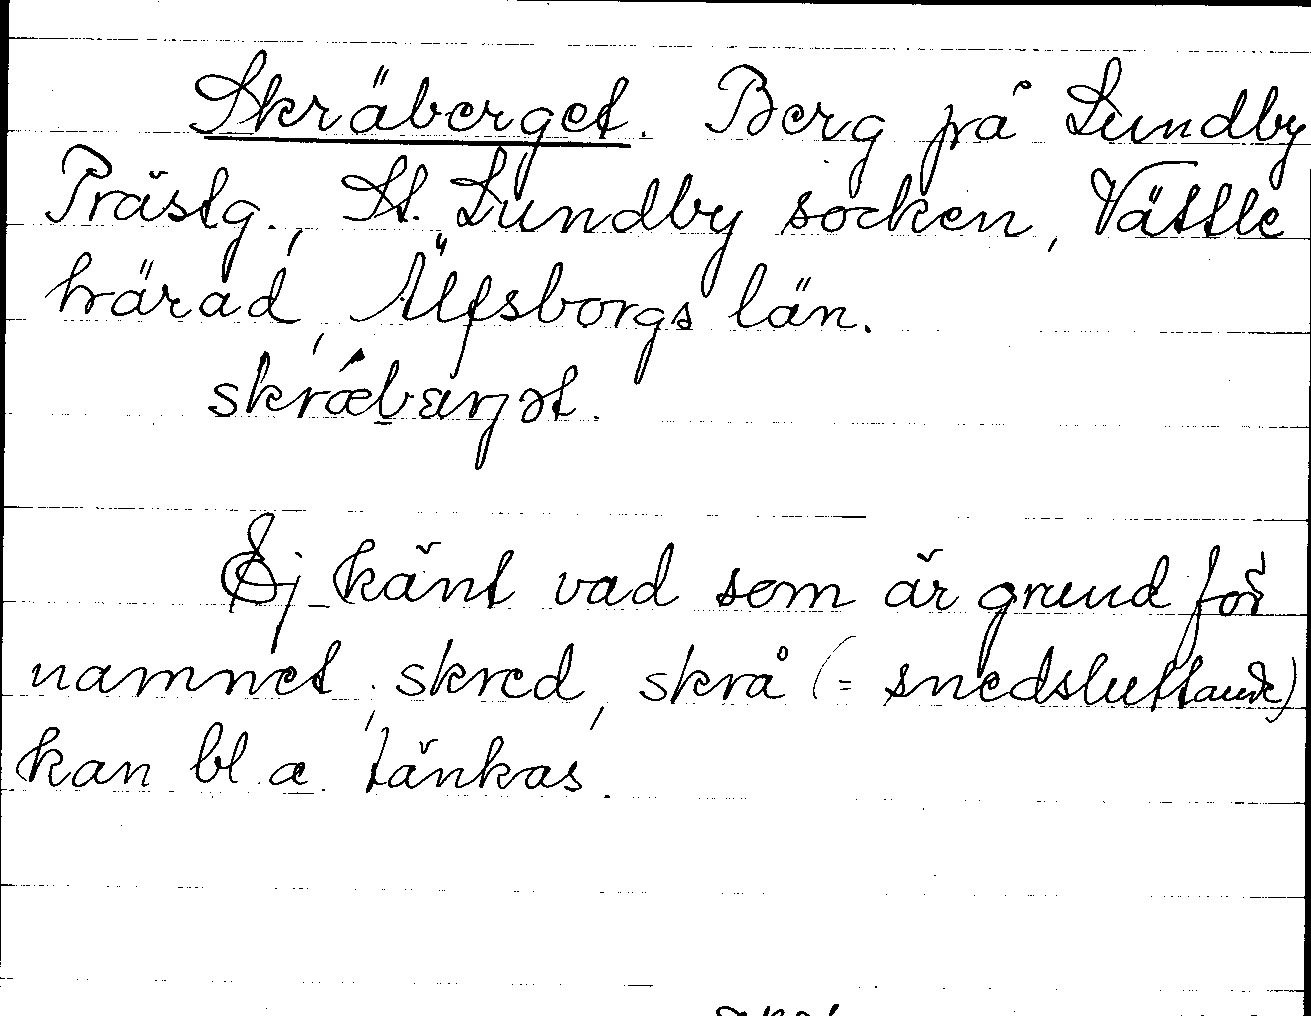 Skräberget. Berg på Lundby
Prästg., St. Lundby socken, Vättle
härad, Älfsborgs län.
skræbærɟət.
Ej känt vad som är grund för
namnet, skred, skrå (= snedsluttande)
kan bl a tänkas.